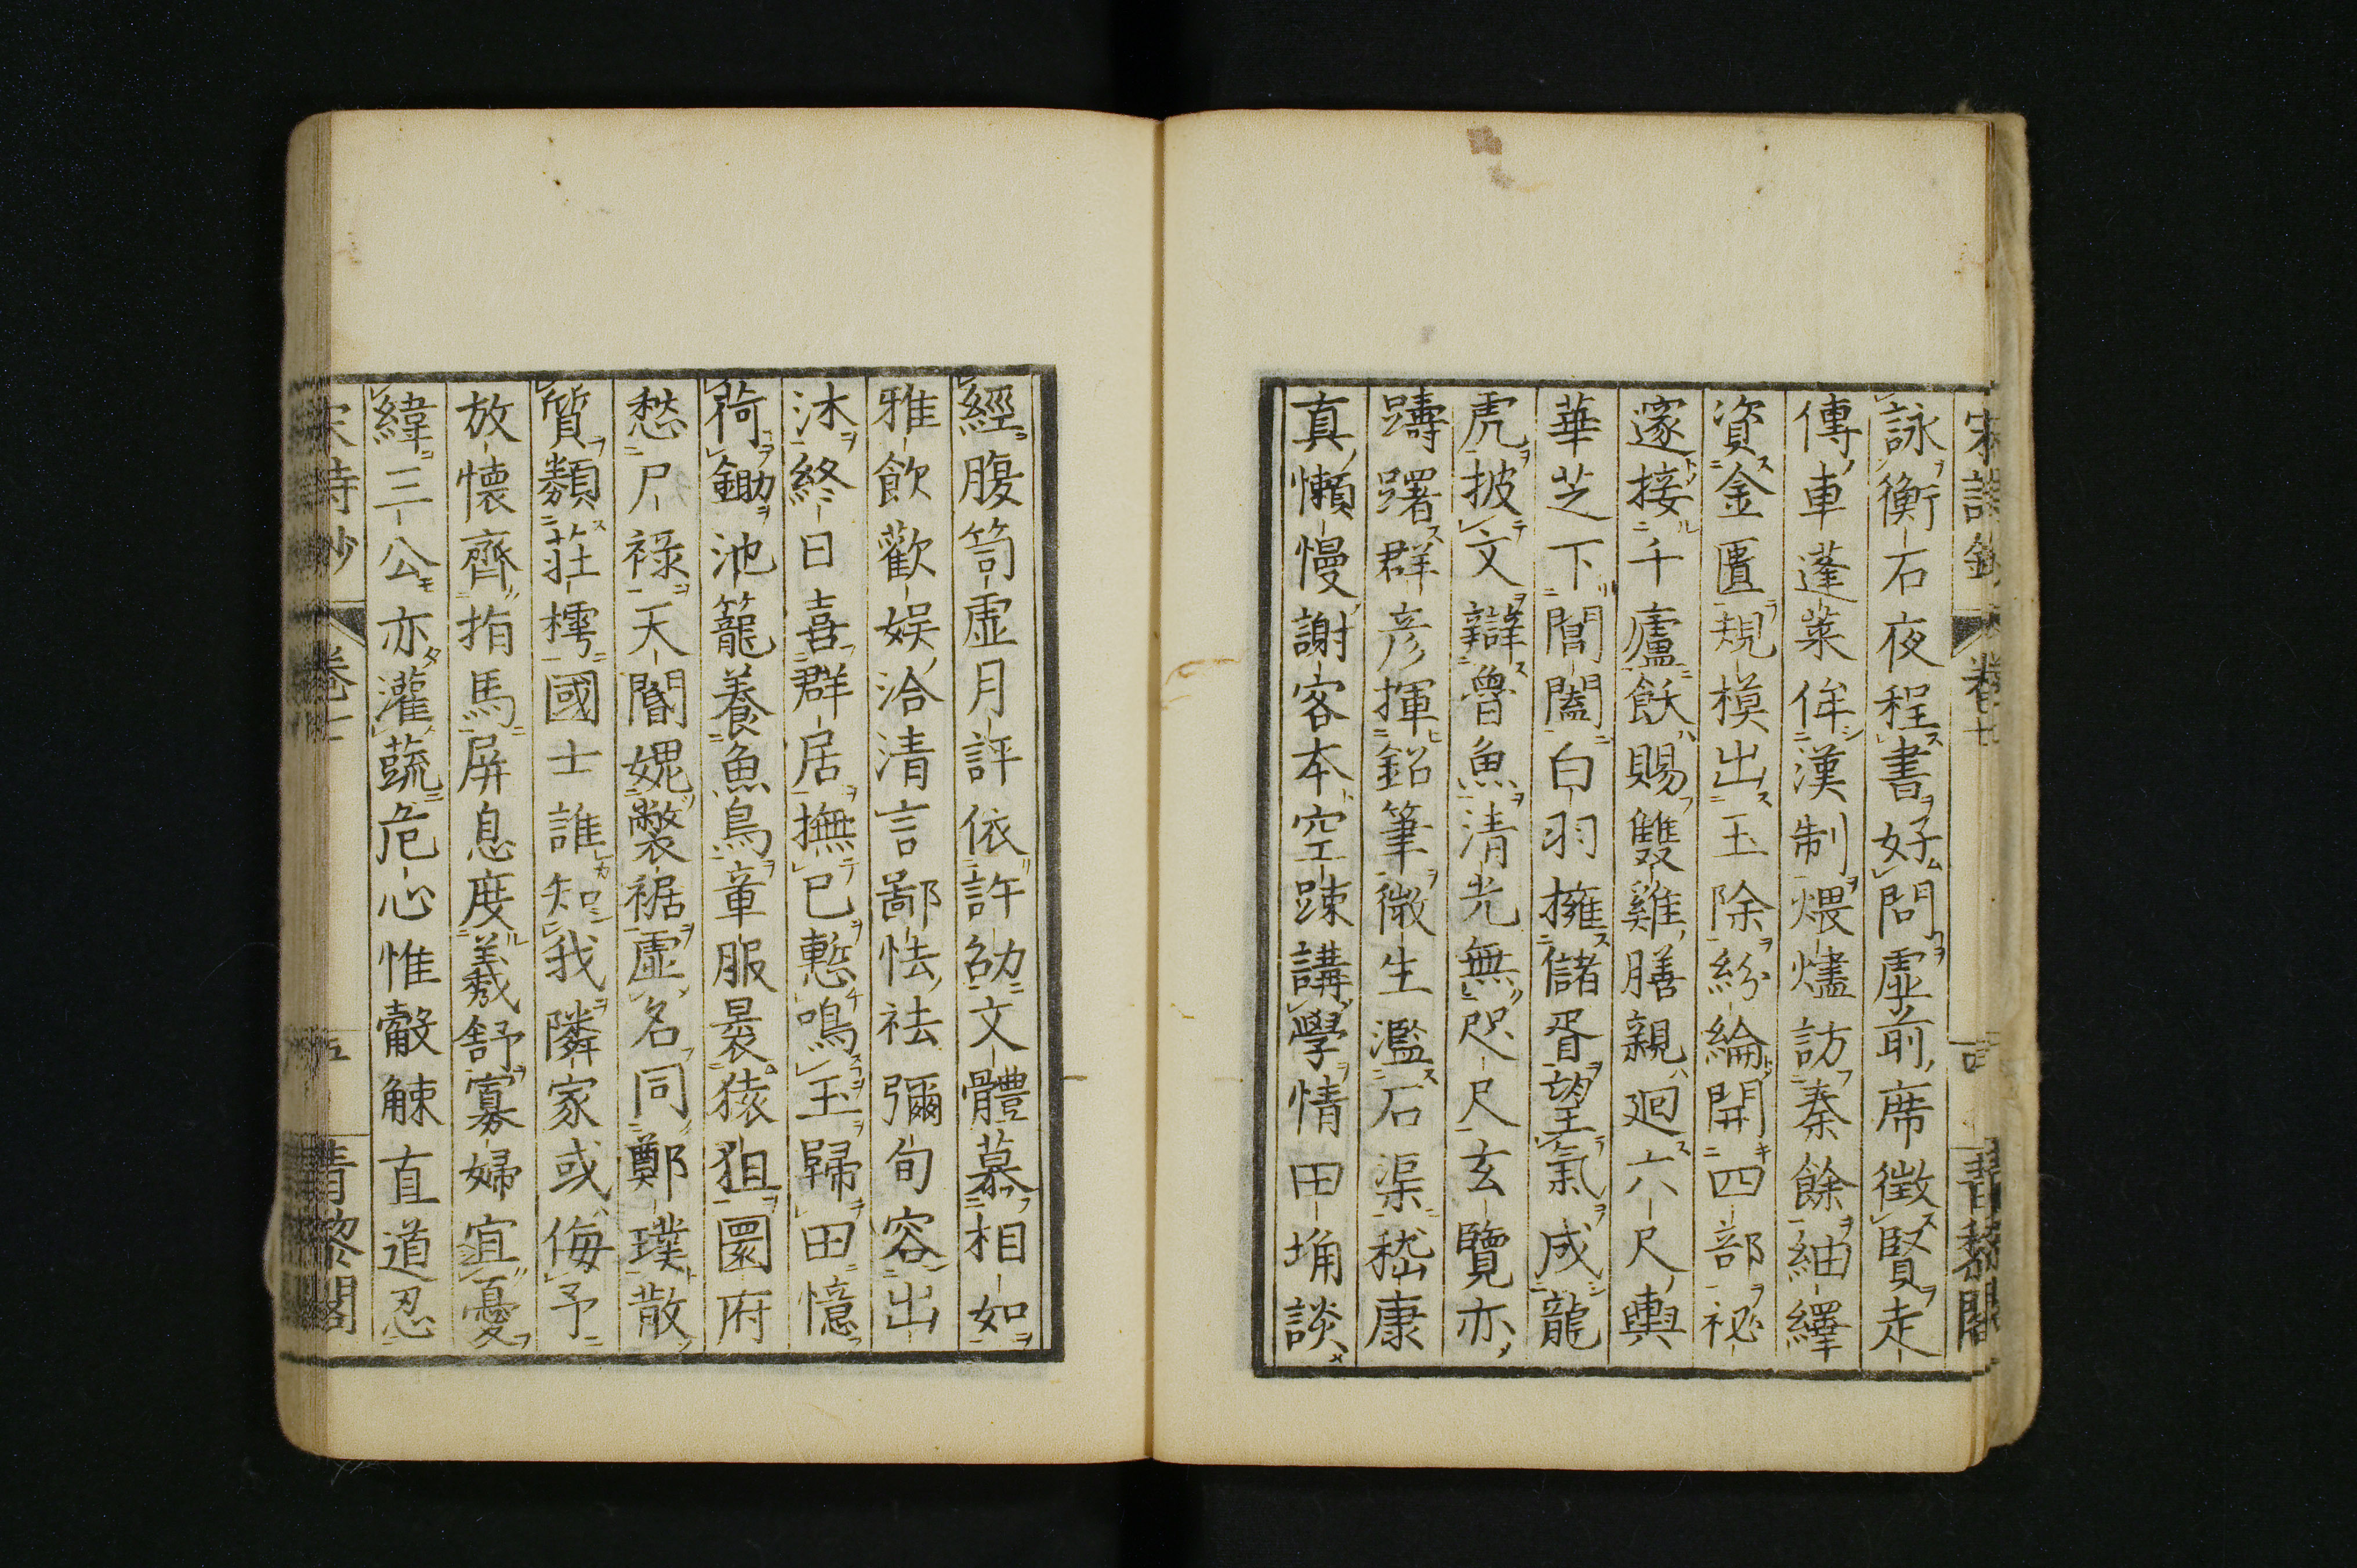 詠衡石夜程書好問虛前席徵賢走
傳車蓬萊侔漢制煨燼訪秦餘紬繹
資金匱規模出玉除紛綸開四部祕
邃接千廬飫賜雙雞膳親迴六尺輿
華芝下閶闔白羽擁儲胥望氣成龍
虎披文辯魯魚清光無咫尺玄覽亦
躊躇群彦揮鉛筆微生濫石渠嵇康
真懶慢謝客本空踈講學情田埆談
經腹笥虛月評依許劭文體慕相如
雅飲歡娛洽清言鄙怯袪彌旬容出
沐終日喜群居撫已慙鳴玉歸田憶
荷鋤池籠養魚鳥章服裊猿狙圜府
愁尸祿天閽媿弊裾虛名同鄭璞散
質類莊樗國士誰知我隣家或侮予
放懷齊指馬屏息度羲舒寡婦宜憂
緯三公亦灌蔬危心惟觳觫直道忍
宋詩鈔 卷七 五 青黎閣